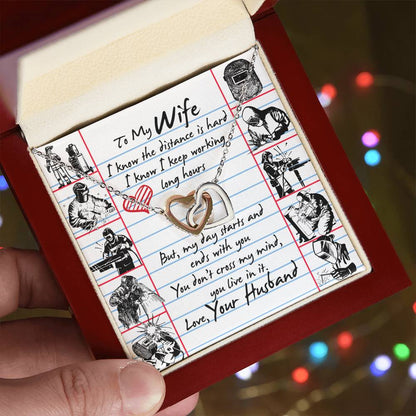 To My Wife
I know the distance is hard
I know I keep working
long hours
But, my day starts and
ends with you
You don't cross my mind,
you live in it,
Love, Your Husband